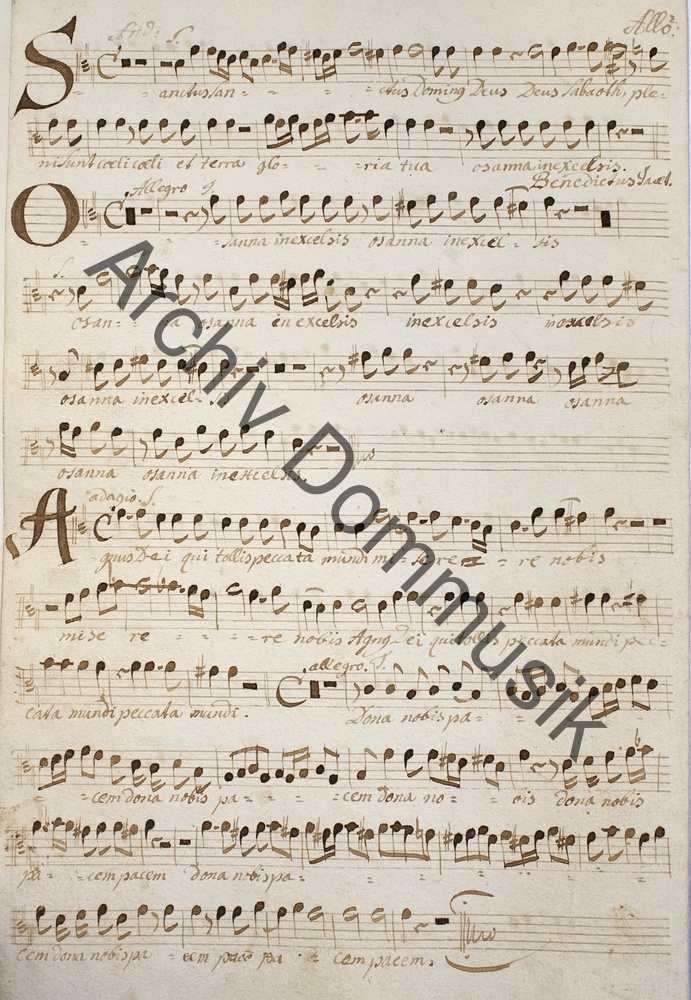 And: S. Allo:
Sanctus san - - - ctus Doming Deus Deus Sabaoth, ple-
ni sunt cœli cœli et terra glo - - - ria tua osanna in excelsis.
Benedictus Tacet.
Allegro S.
O - - - sanna in excelsis osanna in excel - sis
S.
osan - - na osanna in excelsis in excelsis in excelsis
osanna in excel - sis osanna osanna osanna
osanna osanna in excelsis.
adagio. S.
Agnus Dei qui tollis peccata mundi mi - sere - re nobis
mise re - - - - re nobis Agng Dei qui tollis peccata mundi pec-
cata mundi peccata mundi.
allegro. S.
Dona nobis pa - - -
- - cem dona nobis pa - - - - cem dona no - - bis dona nobis
pa - - cem pacem dona nobis pa - - - - -
cem dona nobis pa - cem pace pa - cem pacem.
Archiv Dommusik